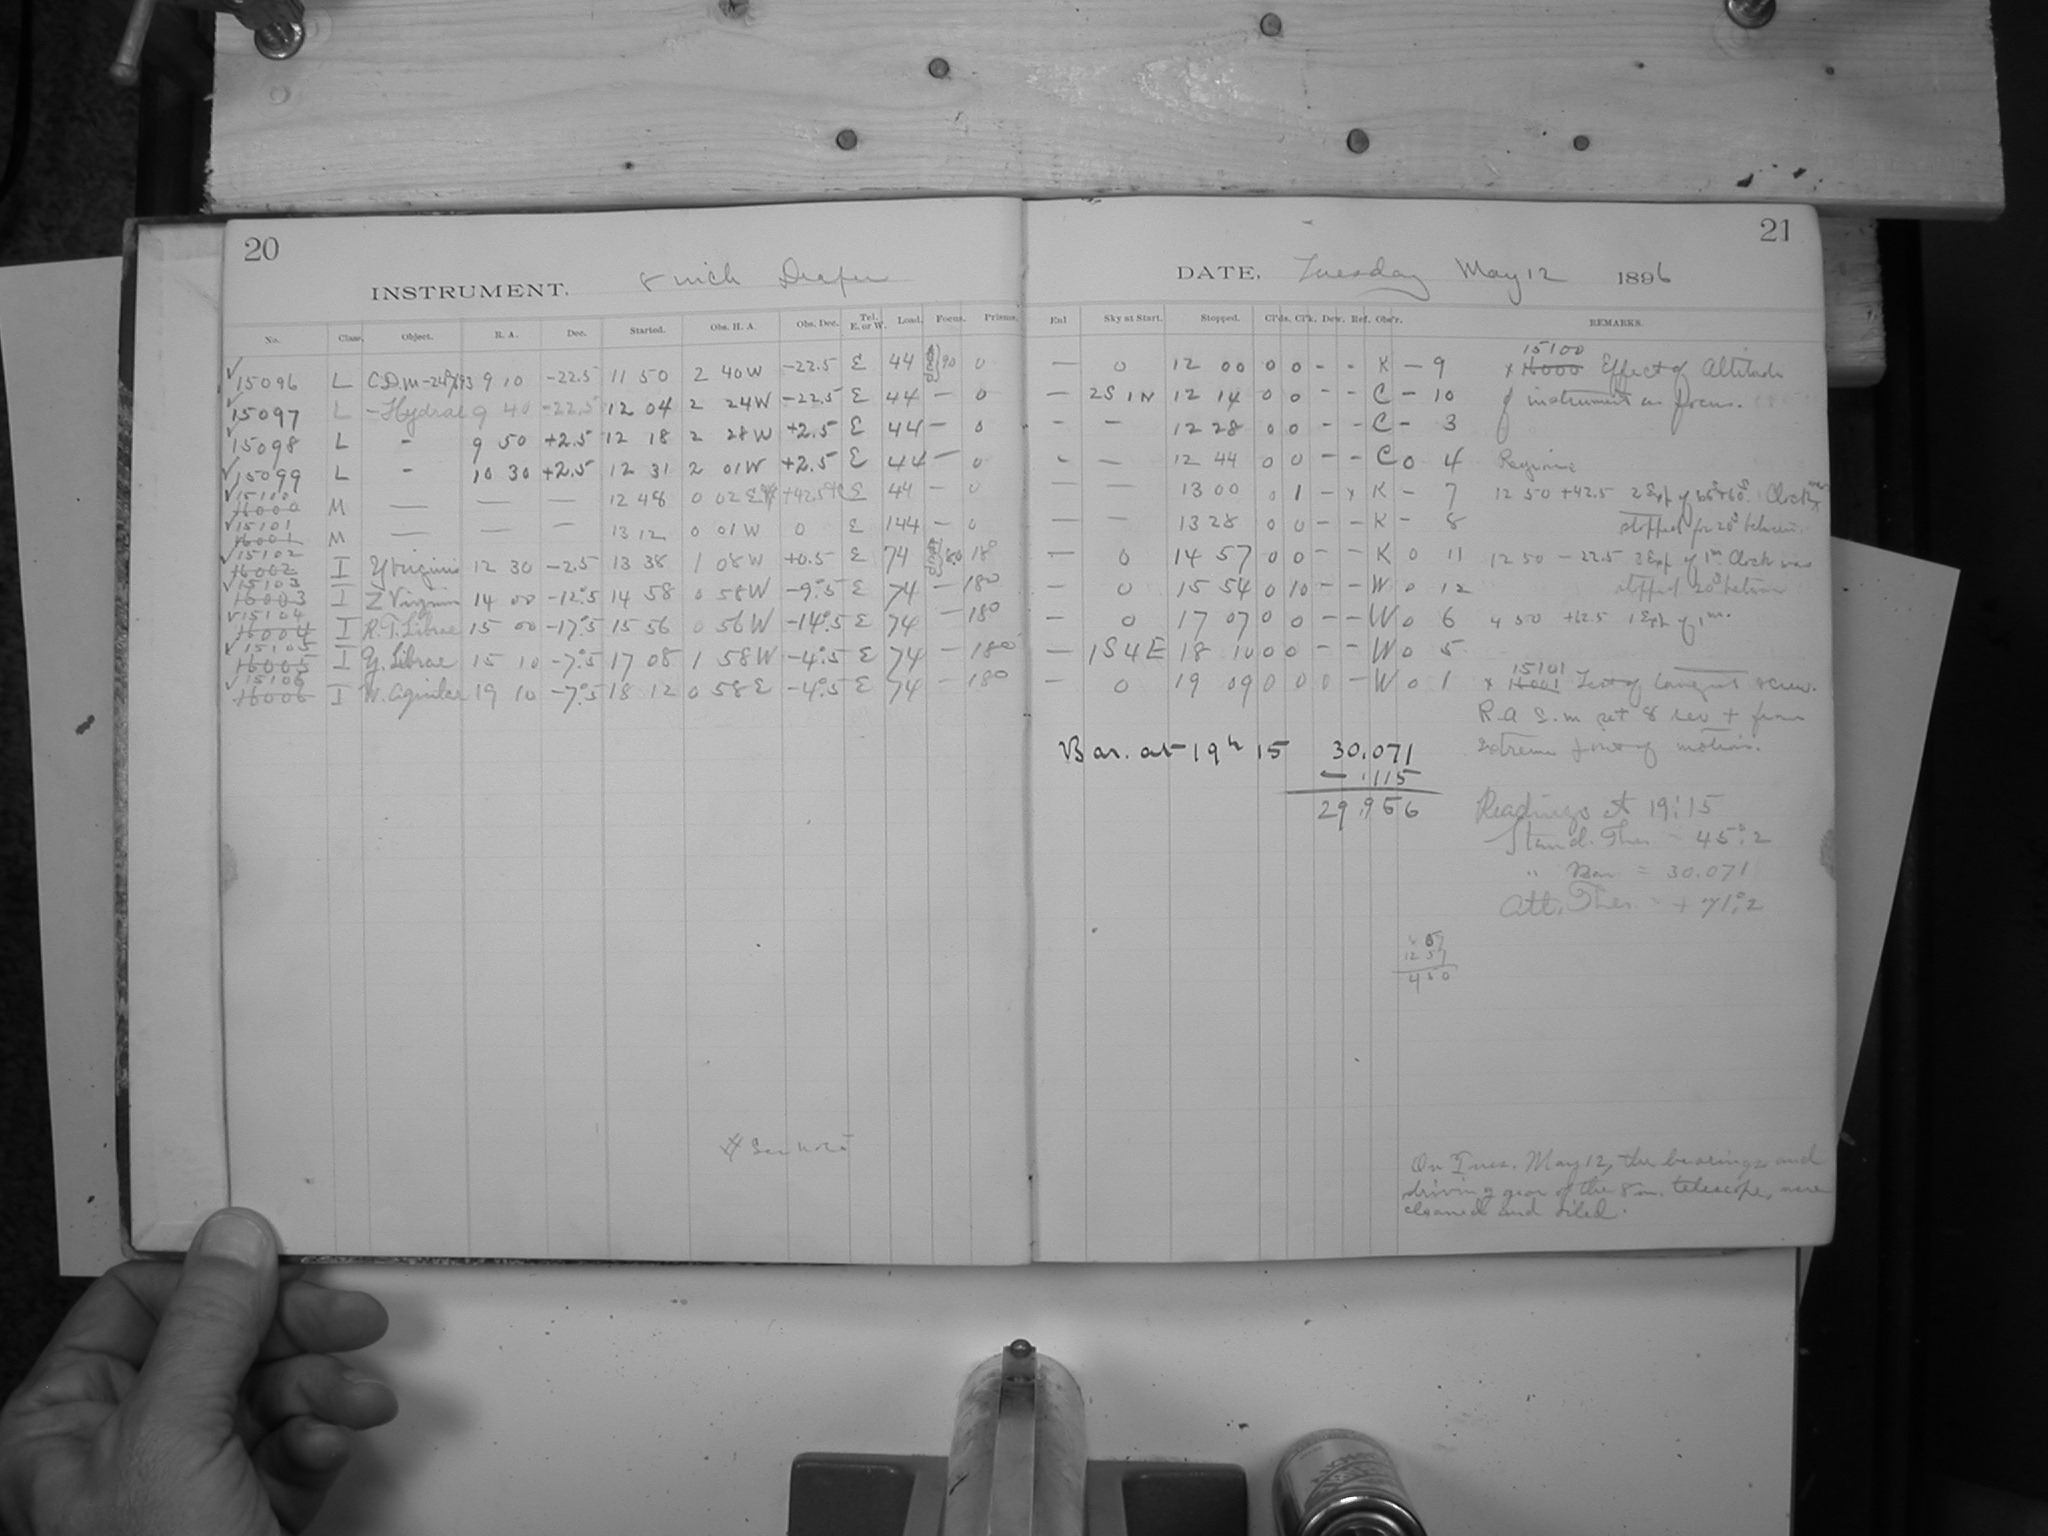 20
INSTRUMENT. 8 inch Draper
No. Class. Object. R. A. Dec. Started. Obs. H. A. Obs. Dec. Tel. E. or W. Load. Focus. Prisms.
✓15096 L C.D.M -22.5 9 10 -22.5 11 50 2 40W -22.5 E 44 90 0
✓15097 L - Hydrae 9 40 -22.5 12 04 2 24W -22.5 E 44 - 0
✓15098 L - 9 50 +2.5 12 18 2 28W +2.5 E 44 - 0
✓15099 L - 10 30 +2.5 12 31 2 01W +2.5 E 44 - 0
✓15100
16000 M — — — 12 48 0 02E +42.5 E 44 - 0
✓15101
16001 M — — — 13 12 0 01W 0 E 144 - 0
✓15102
16002 I Y Virginis 12 30 -2.5 13 38 1 08W +0.5 E 74 80 180
✓15103
16003 I Z Virginis 14 00 -12.5 14 58 0 58W -9.5 E 74 - 180
✓15104
16004 I R.T. Librae 15 00 -17.5 15 56 0 56W -14.5 E 74 - 180
✓15105
16005 I Y. Librae 15 10 -7.5 17 08 1 58W -4.5 E 74 - 180
✓15106
16006 I W. Aquilae 19 10 -7.5 18 12 0 58E -4.5 E 74 - 180
See note
21
DATE. Tuesday May 12 1896
Enl Sky at Start. Stopped. Cl'ds. Cl'k. Dew. Ref. Obs'r. REMARKS.
— 0 12 00 0 0 - - K - 9
— 2S 1N 12 14 0 0 - - C - 10
— — 12 28 0 0 - - C - 3
- — 12 44 0 0 - - C 0 4
— — 13 00 0 1 - x K - 7
— — 13 28 0 0 - - K - 8
— 0 14 57 0 0 - - K 0 11
— 0 15 54 0 10 - - W 0 12
— 0 17 07 0 0 - - W 0 6
— 1S4E 18 10 0 0 - - W 0 5
— 0 19 09 0 0 0 - W 0 1
15100
x 16000 Effect of Altitude
of instrument on focus.
Regions
12 50 +42.5 2 Exp of 60s + 60s. Clock was
stopped for 20s between.
12 50 - 22.5 2 Exp of 1m Clock was
stopped 20s between
4 50 +12.5 1 Exp of 1m.
15101
x 16001 Test of tangent screw.
R.A S.M set 8 rev + from
extreme point of motion.
Bar. at 19h 15 30.071
- .115
29.956
Readings at 19:15
Stand. Ther. - 45°.2
" Bar = 30.071
Att. Ther. = + 71°.2
12 57
4 50
On Tues. May 12, the bearings and
driving gear of the 8 in. telescope, were
cleaned and oiled.